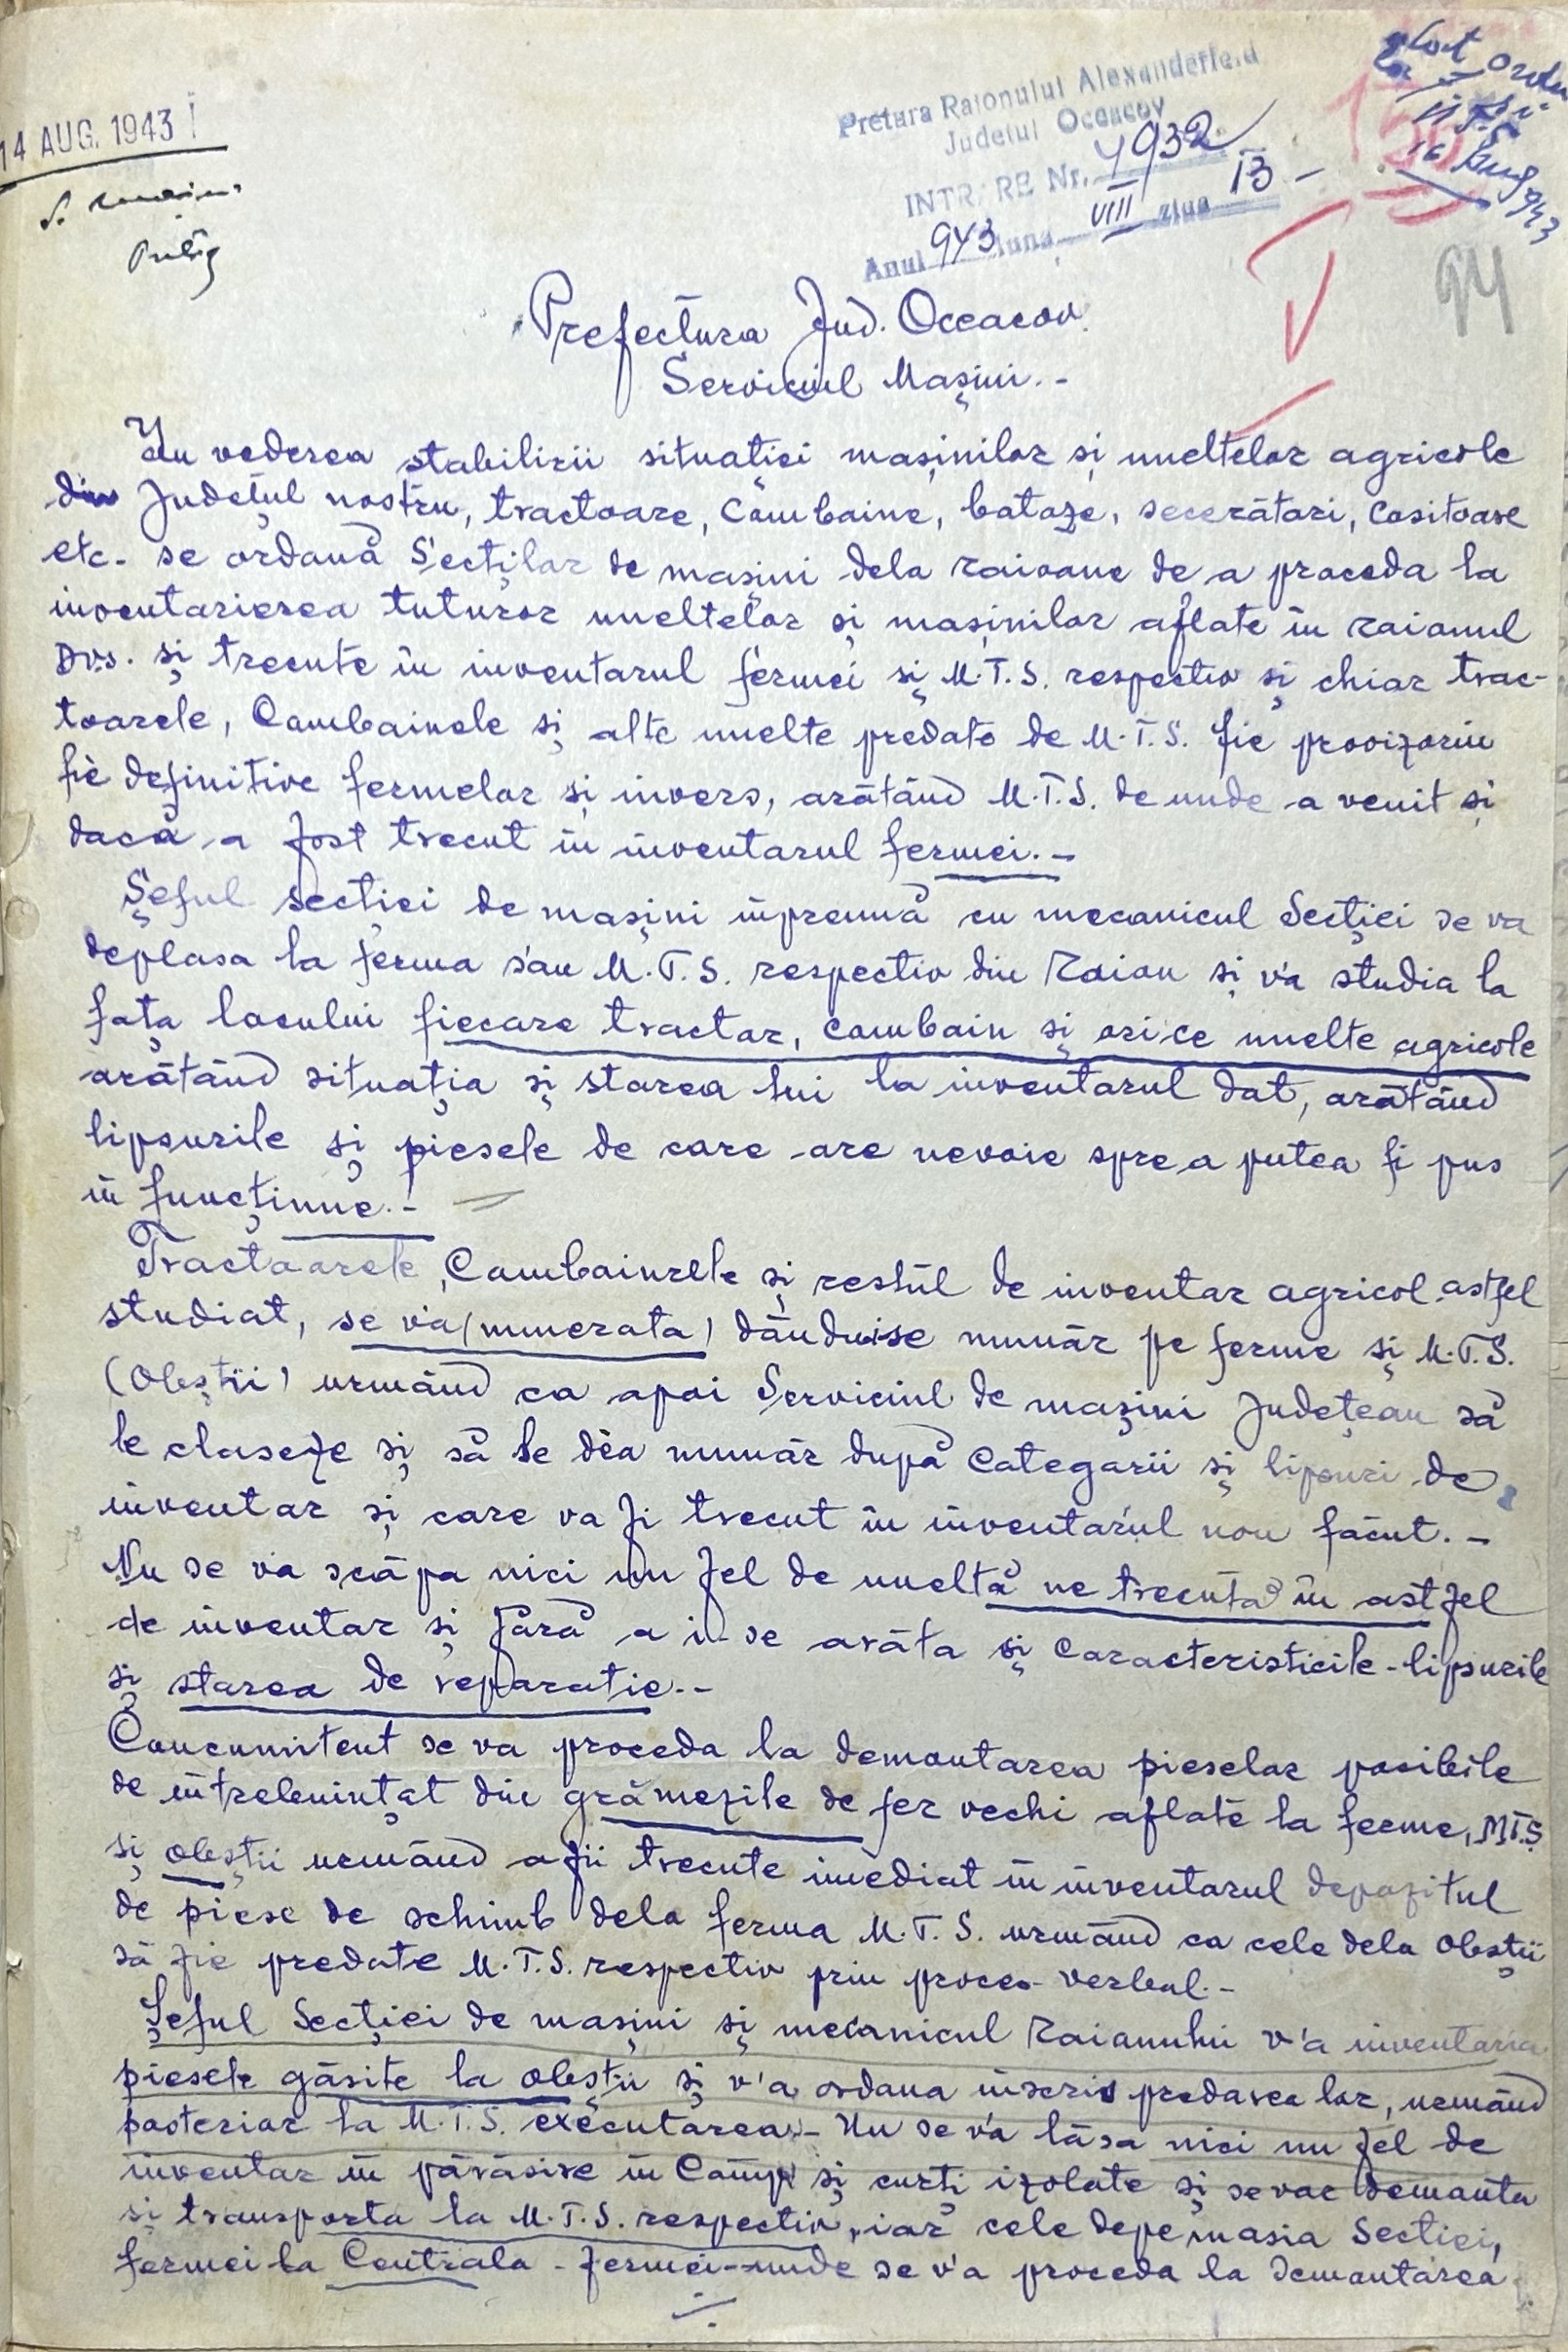 14 AUG. 1943
Pretura Raionului Alexanderfeld
Judetul Oceacov
INTRARE Nr. 4932
Anul 943 luna VIII ziua 13 -
16 Aug 943
94
Prefectura Jud. Oceacov
Serviciul Mașini.-
In vederea stabilirii situației mașinilor și uneltelor agricole
din Județul nostru, tractoare, Combaine, bataze, secerătari, cositoare
etc. se ordonă Secților de mașini dela raioane de a proceda la
inventarierea tuturor uneltelor și mașinilor aflate în raionul
Dvs. și trecute în inventarul fermei și M.T.S. respectiv și chiar trac-
toarele, Combainele și alte unelte predate de M.T.S. fie provizoriu
fie definitive fermelor și invers, arătând M.T.S. de unde a venit și
dacă a fost trecut în inventarul fermei.-
Șeful secției de mașini împreună cu mecanicul Secției se va
deplasa la ferma sau M.T.S. respectiv din Raion și v'a studia la
fața locului fiecare tractor, combain și orice unelte agricole
arătând situația și starea lui la inventarul dat, arătând
lipsurile și piesele de care are nevoie spre a putea fi pus
în funcțiune.-
Tractoarele, Combainele și restul de inventar agricol astfel
studiat, se va (numerata) dânduise număr pe ferme și M.T.S.
(Obștii) urmând ca apoi Serviciul de mașini Județean să
le claseze și să le dea număr după Categorii și lipsuri de
inventar și care va fi trecut în inventarul nou făcut.-
Nu se va scăpa nici un fel de unealtă ne trecută în astfel
de inventar și fără a i-se arăta și caracteristicile-lipsurile
și starea de reparație.-
Concomitent se va proceda la demontarea pieselor posibile
de întrebuințat din grămezile de fer vechi aflate la ferme, MTS
și obștii urmând a fii trecute imediat în inventarul depozitul
de piese de schimb dela ferma M.T.S. urmând ca cele dela Obștii
să fie predate M.T.S. respectiv prin proces-verbal.-
Șeful Secției de mașini și mecanicul Raionului v'a inventaria
piesele găsite la obștii și v'a ordona înscris predarea lor, urmând
posterior la M.T.S. executarea.- Nu se v'a lăsa nici un fel de
inventar în părăsire în Câmp și curți izolate și se vor demonta
și transporta la M.T.S. respectiv, iar cele depe masia Secției,
fermei la Centrala - fermei-unde se v'a proceda la demontarea
./.